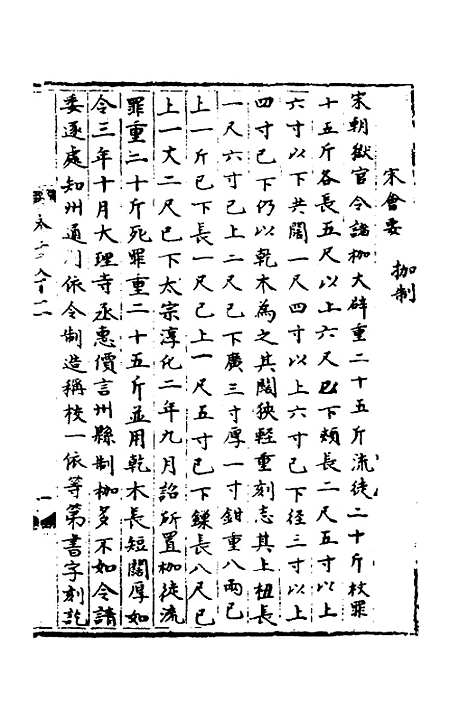 宋會要 枷制
宋朝獄官令諸枷大辟重二十五斤流徒二十斤杖罪
十五斤各長五尺以上六尺已下頰長二尺五寸以上
六寸以下共闊一尺四寸以上六寸已下径三寸以上
四寸已下仍以乾木為之其闊狹輕重刻志其上杻長
一尺六寸已上二尺已下廣三寸厚一寸鉗重八兩已
上一斤已下長一尺已上一尺五寸已下鏁長八尺已
上一丈二尺已下太宗淳化二年九月詔所置枷徒流
罪重二十斤死罪重二十五斤並用乾木長短闊厚如
令三年十月大理寺丞惠價言州縣制枷多不如令請
委逐處知州通判依令制造稱校一依等第書字刻訖